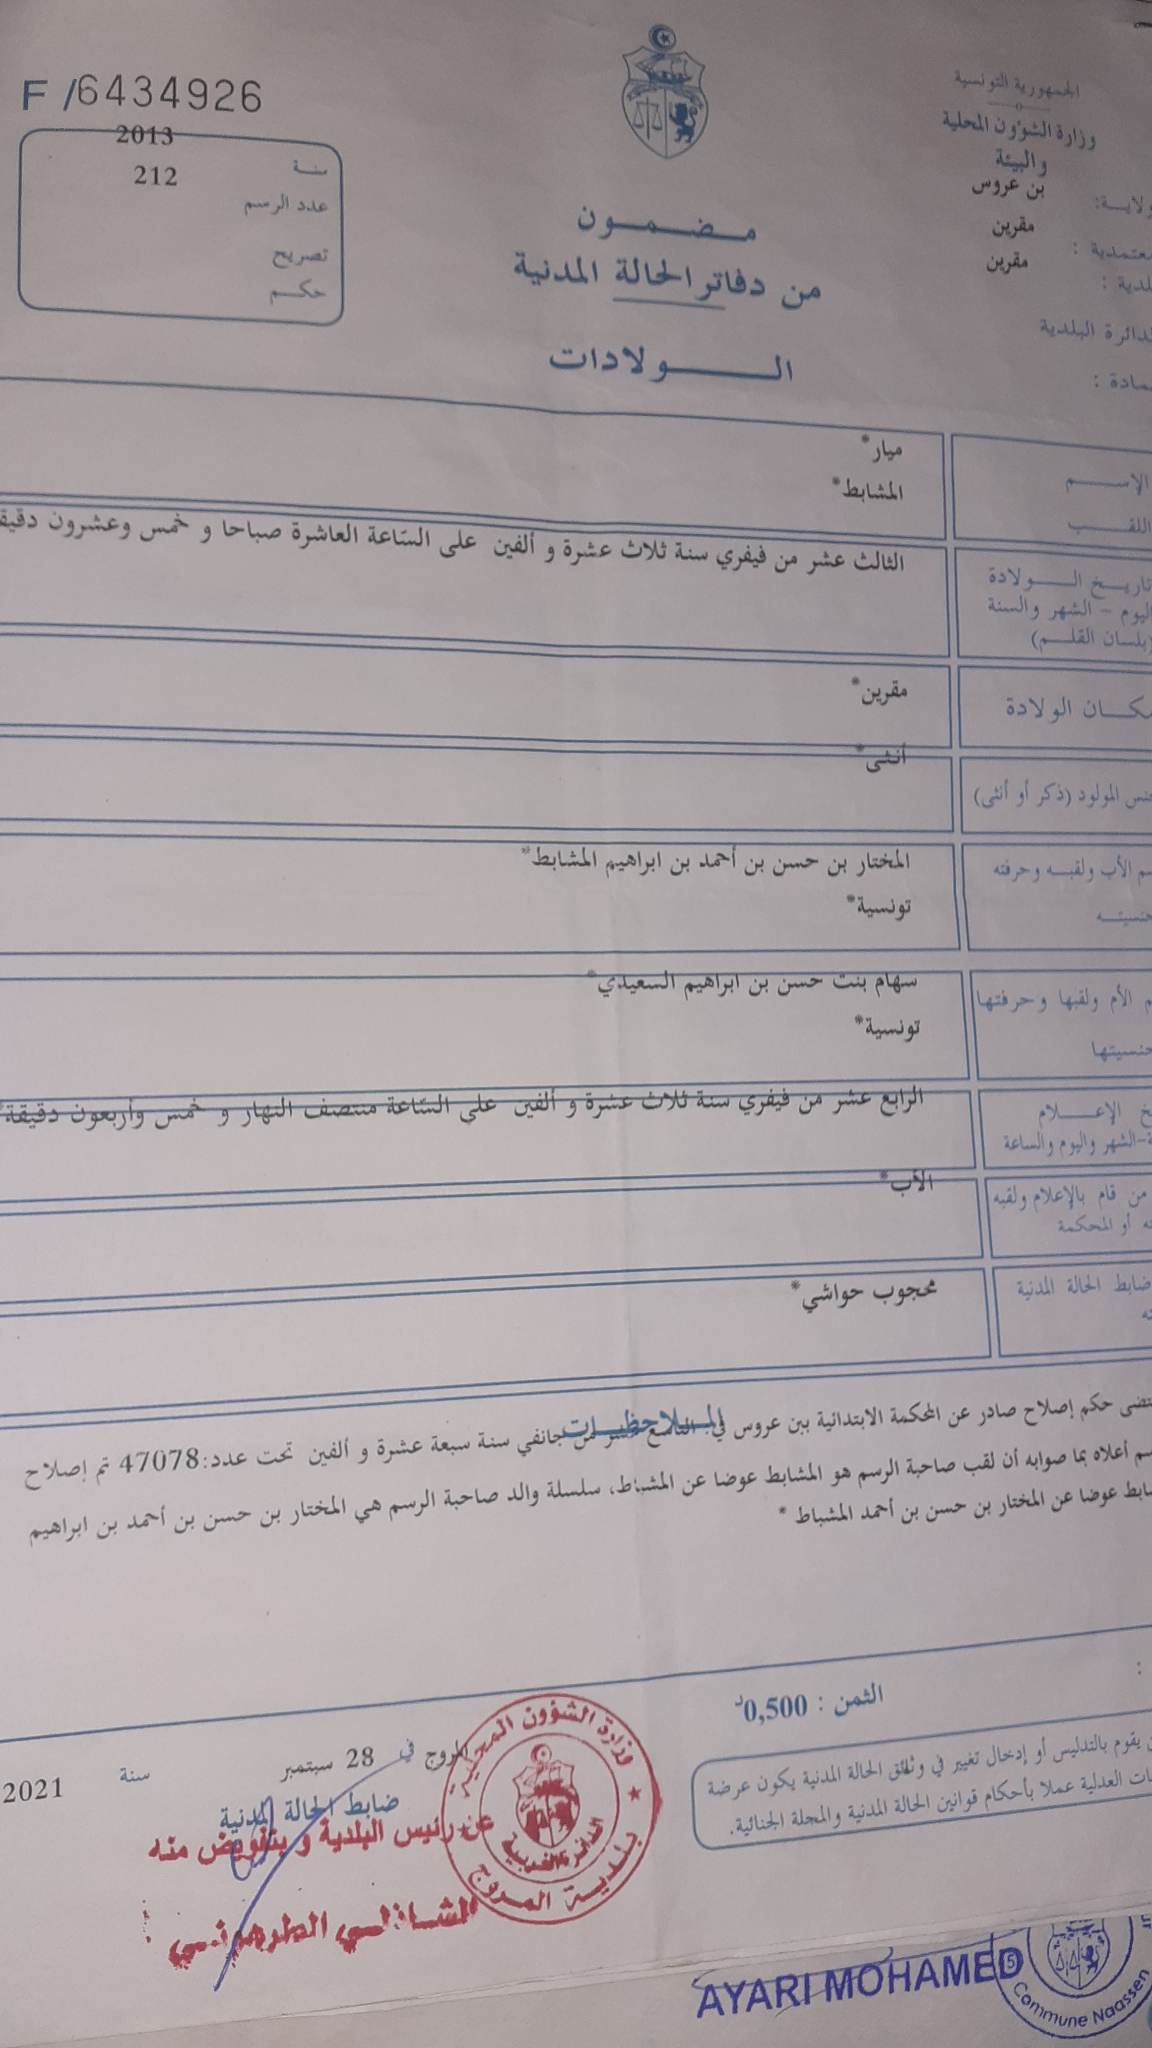 الجمهورية التونسية
وزارة الشؤون المحلية
والبيئة
ولاية: بن عروس
معتمدية : مقرين
بلدية : مقرين
الدائرة البلدية
عمادة :
F /6434926
سنة 2013
عدد الرسم 212
تصريح
حكم
مضمون
من دفاتر الحالة المدنية
الولادات
الإسم ميار*
اللقب المشابط*
تاريخ الولادة الثالث عشر من فيفري سنة ثلاث عشرة و ألفين على السّاعة العاشرة صباحا و خمس وعشرون دقيقة
اليوم - الشهر والسنة
(بلسان القلم)
مكان الولادة مقرين*
جنس المولود (ذكر أو أنثى) أنثى*
سم الأب ولقبه وحرفته المختار بن حسن بن أحمد بن ابراهيم المشابط*
جنسيته تونسية*
م الأم ولقبها وحرفتها سهام بنت حسن بن ابراهيم السعيدي*
جنسيتها تونسية*
خ الإعلام الرابع عشر من فيفري سنة ثلاث عشرة و ألفين على السّاعة منتصف النهار و خمس وأربعون دقيقة*
ة-الشهر واليوم والساعة
من قام بالإعلام ولقبه الأب*
ته أو المحكمة
ضابط الحالة المدنية محجوب حواشي*
الملاحظات
تضى حكم إصلاح صادر عن المحكمة الابتدائية ببن عروس في التاسع عشر من جانفي سنة سبعة عشرة و ألفين تحت عدد:47078 تم إصلاح
سم أعلاه بما صوابه أن لقب صاحبة الرسم هو المشابط عوضا عن المشباط، سلسلة والد صاحبة الرسم هي المختار بن حسن بن أحمد بن ابراهيم
شابط عوضا عن المختار بن حسن بن أحمد المشباط *
الثمن : 0,500د
ن يقوم بالتدليس أو إدخال تغيير في وثائق الحالة المدنية يكون عرضة
بات العدلية عملا بأحكام قوانين الحالة المدنية والمجلة الجنائية.
المروج في 28 سبتمبر سنة 2021
ضابط الحالة المدنية
عن رئيس البلدية و بتفويض منه
الشاذلي الطرهوني
وزارة الشؤون المحلية
بلدية المروج
AYARI MOHAMED
Commune Naassen